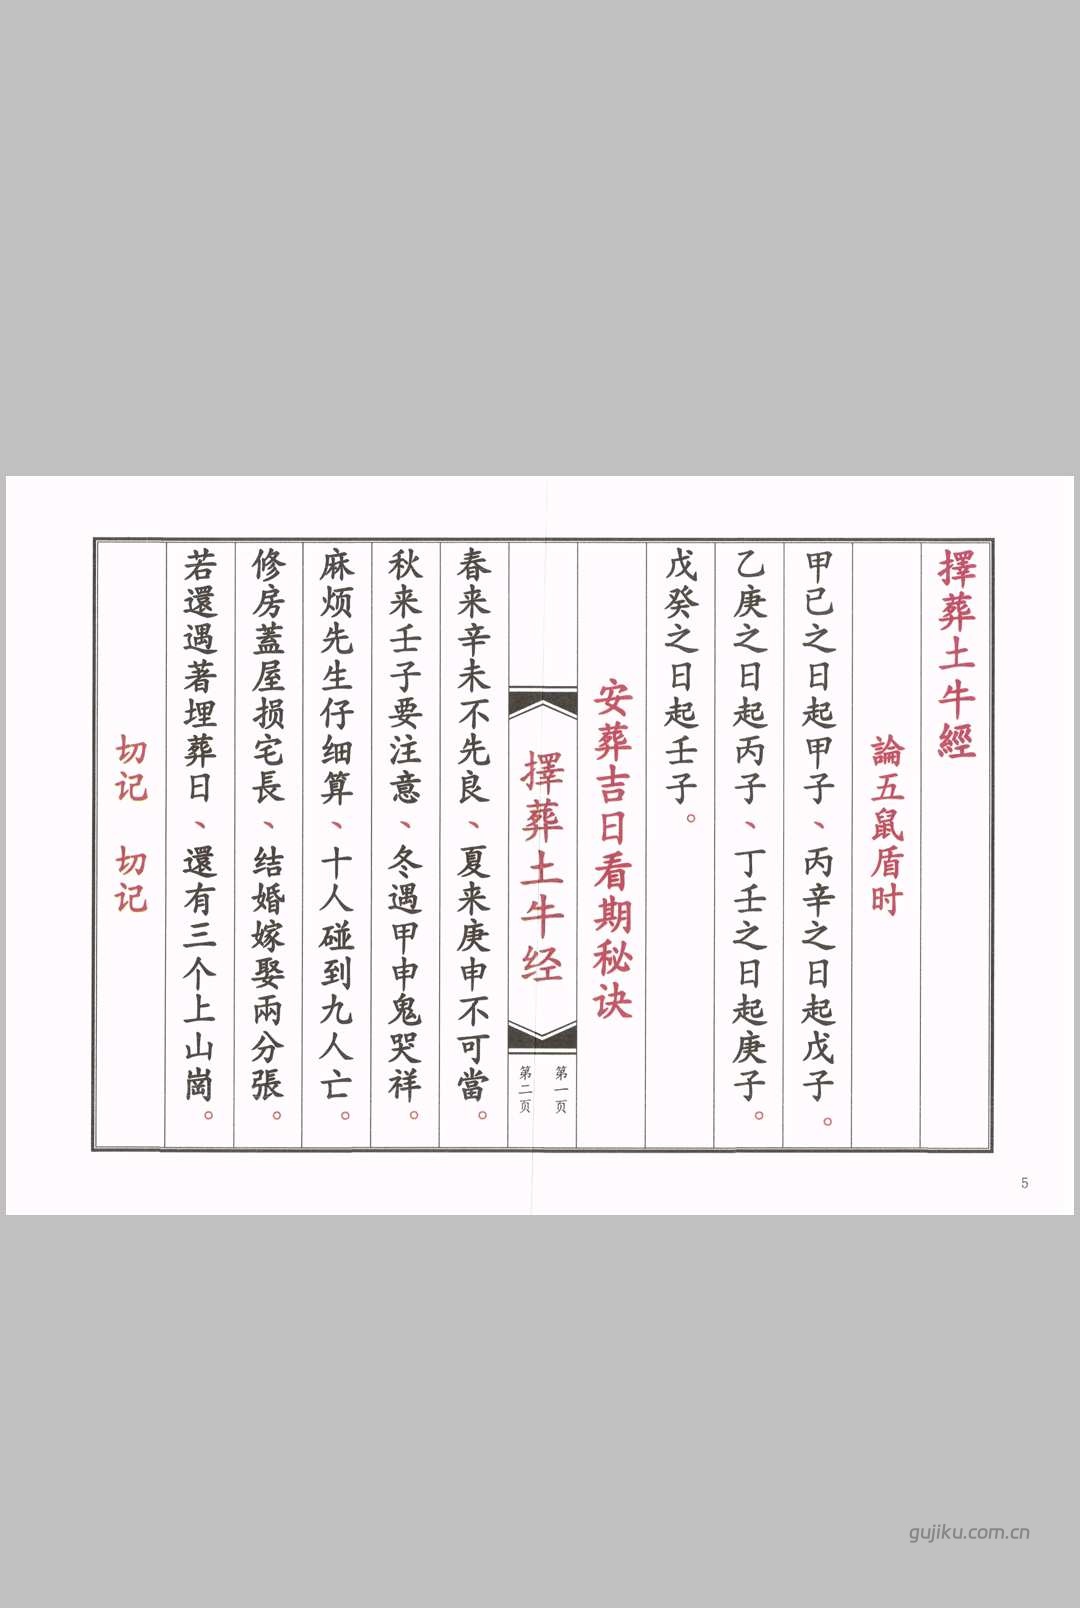 擇葬土牛經
論五鼠盾时
甲已之日起甲子、丙辛之日起戊子。
乙庚之日起丙子、丁壬之日起庚子。
戊癸之日起壬子。
安葬吉日看期秘诀
擇葬土牛经
第一页
第二页
春来辛未不先良、夏来庚申不可當。
秋来壬子要注意、冬遇甲申鬼哭祥。
麻烦先生仔细算、十人碰到九人亡。
修房蓋屋损宅長、结婚嫁娶兩分張。
若還遇著埋葬日、還有三个上山崗。
切记 切记
5
gujiku.com.cn